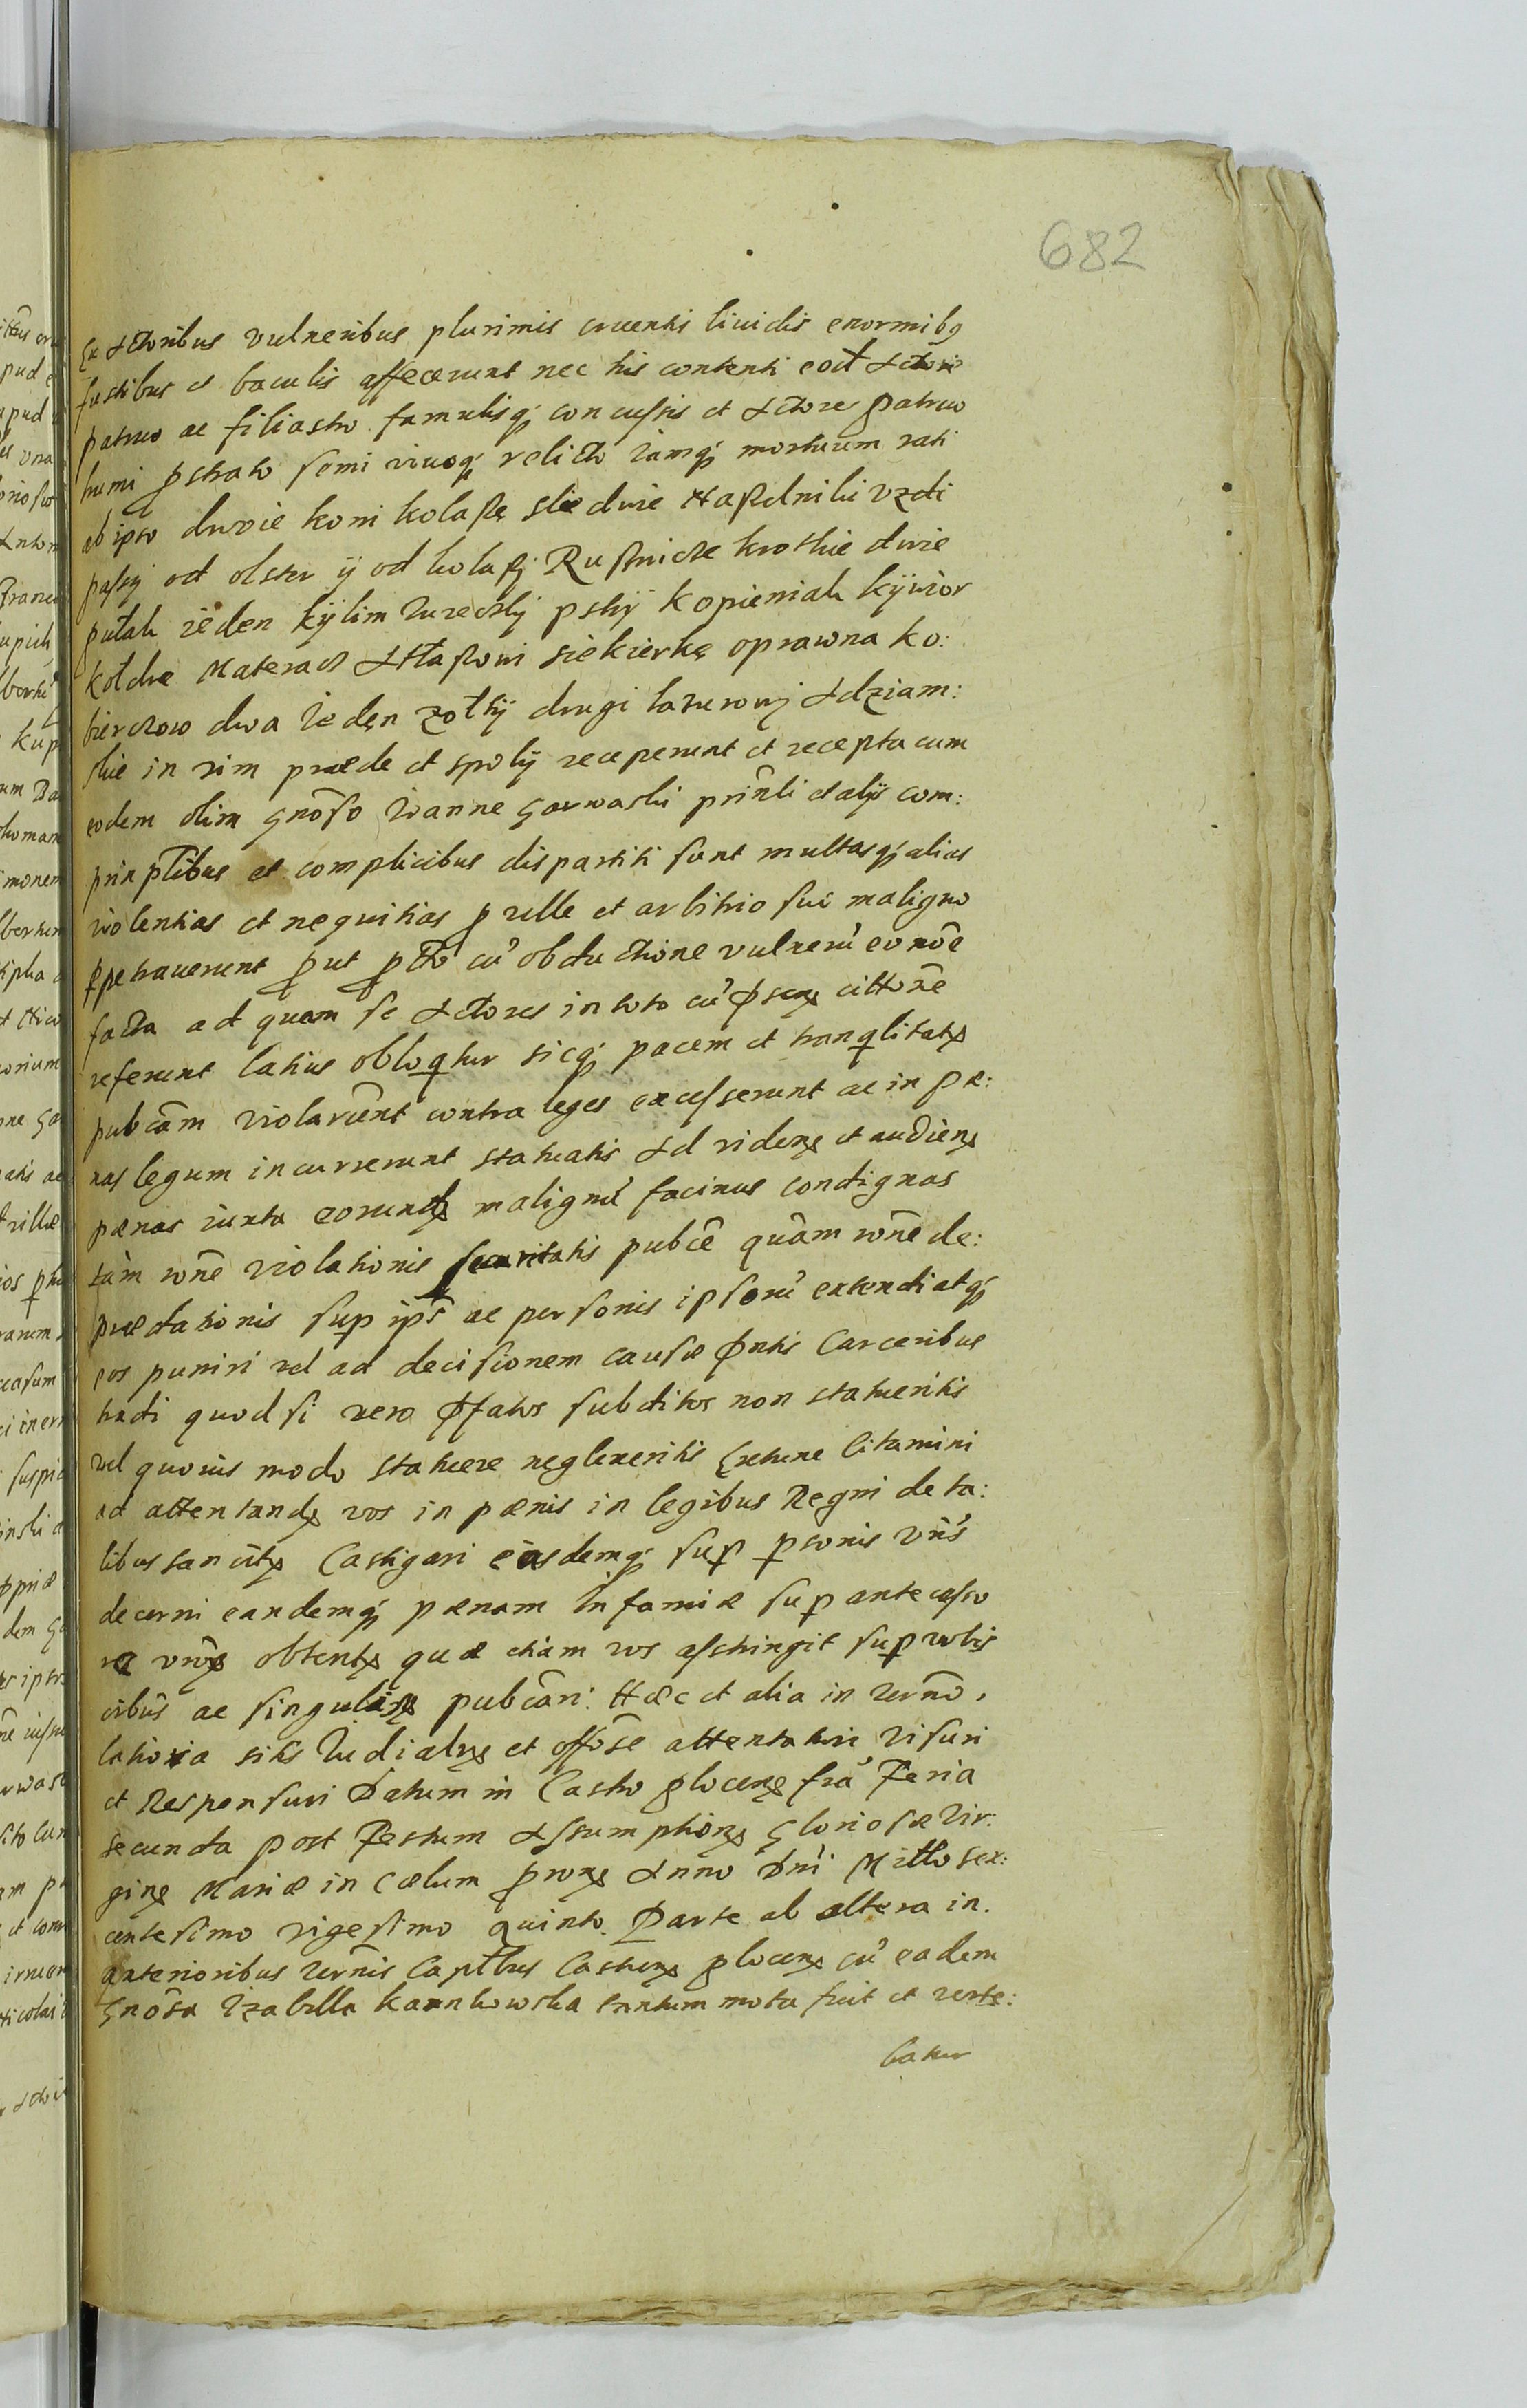 682
Ex Actoribus vulneribus plurimis cruentis liuidis enormibq
fustibus et baculis affecerunt nec his contenti eod Actore
patruo ac filiastro famulisq; concussis et Actore patruo
humi pstrato semi viuoq; relicto iamq; mortuum rati
ab ipso dwoie koni kolaßę dwie uzdi
paßÿ od olster ÿ od kolaßÿ Rußnicze krotkie dwie
pułak ieden kÿlim tureczkÿ pski kopieniak kÿwior
kołdrę Materacz Atłaßowi siekierkę oprawna ko:
bierczow dwa ieden zołtÿ drugi lazurowÿ Adziam:
skie in vim præde et spolÿ receperunt et recepta cum
eodem olim Gnoso Joanne Garwaski prinli et alÿs com:
prinplibus et complicibus dispartiti sunt multasq; alias
violentias et nequitias p velle et arbitrio sui maligno
ppetrauerunt put pttõ cu obductione vulneru eo noe
facta ad quam se Actores in toto cu psens cittone
referunt latius obloqtur sicq; pacem et tranqlitate
pubcam violarunt contra leges excesserunt ac in pæ:
nas legum incurrerunt statuatis Ad videns et audiens
pænas iuxta eorund malignu facinus condignas
tam rone violationis securitatis pubce quam rone de:
prædationis sup ips ac personis ipsoru extendi atq;
eos puniri vel ad decisionem causæ pntis Carceribus
tradi quod si vero pfatos subditos non statueritis
vel quouis modo statuere neglexeritis Extunc Citamini
ad attentand vos in pænis in legibus Regni de ta:
libus sancits Castigari easdemq; sup psonis vris
decerni eandemq; pænam Infamiæ sup antecesso
re vro obtent quæ etiam vos asstringit sup vobis
oibus ac singulis pubcari: Hæc et alia in terno,
latioria sitis Judialr et offose attentaturi visuri
et Responsuri Datum in Castro plocens fra Feria
secunda post Festum Assumptionis Gloriosæ Vir:
gine Mariæ in Cælum prox Anno Dni Mitto sex:
centesimo vigesimo quinto Parte ab altera in.
anterioribus ternis Capttbus Castren plocens cu eadem
Gnosa Izabella Karnkowska tantum mota fuit et verte:
batur